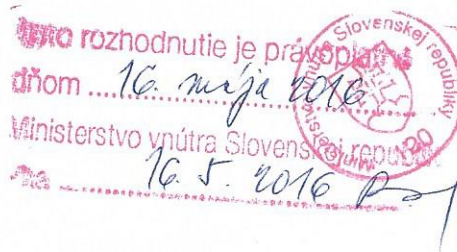 Toto rozhodnutie je právoplatné
dňom ..... 16. mája 2016
Ministerstvo vnútra Slovenskej republiky
16. 5. 2016
Ministerstvo vnútra Slovenskej republiky
20